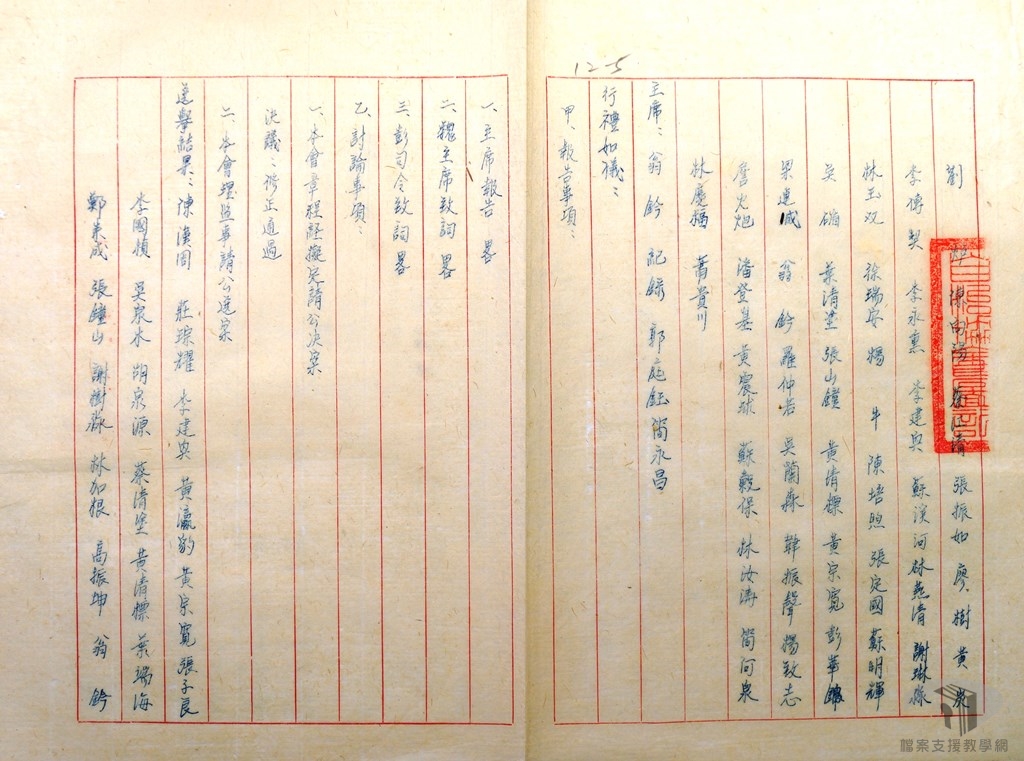 12-5
劉 炉 陳向陽 蔡江清 張振如 廖樹 黃炭
李傳契 李永惠 李建興 蘇漢河 林燕清 謝琳
林玉双 徐瑞安 楊牛 陳培煦 張定國 蘇明輝
吳 葉清塗 張山鐘 黃清標 黃宗寬 彭華
梁進成 翁鈐 羅仲若 吳蘭森 韓振聲 楊致志
詹火炮 潘登基 黃震球 蘇穀保 林汝濤 簡阿泉
林慶 蕭貴川
主席：翁鈐 記錄 郭庭鈺 簡永昌
行禮如儀：
甲、報告事項：
一、主席報告 畧
二、魏主席致詞 畧
三、彭司令致詞 畧
乙、討論事項：
一、本會章程經擬完請公決案
決議：修正通過
二、本會理監事請公選案
選擧結果：陳漢周 莊琮耀 李建興 黃瀛豹 黃宗寬 張子良
李國楨 吳泉水 胡泉源 蔡清塗 黃清標 葉瑞海
鄭美成 張鐘山 謝樹 林加根 高振坤 翁鈐
檔案支援教學網